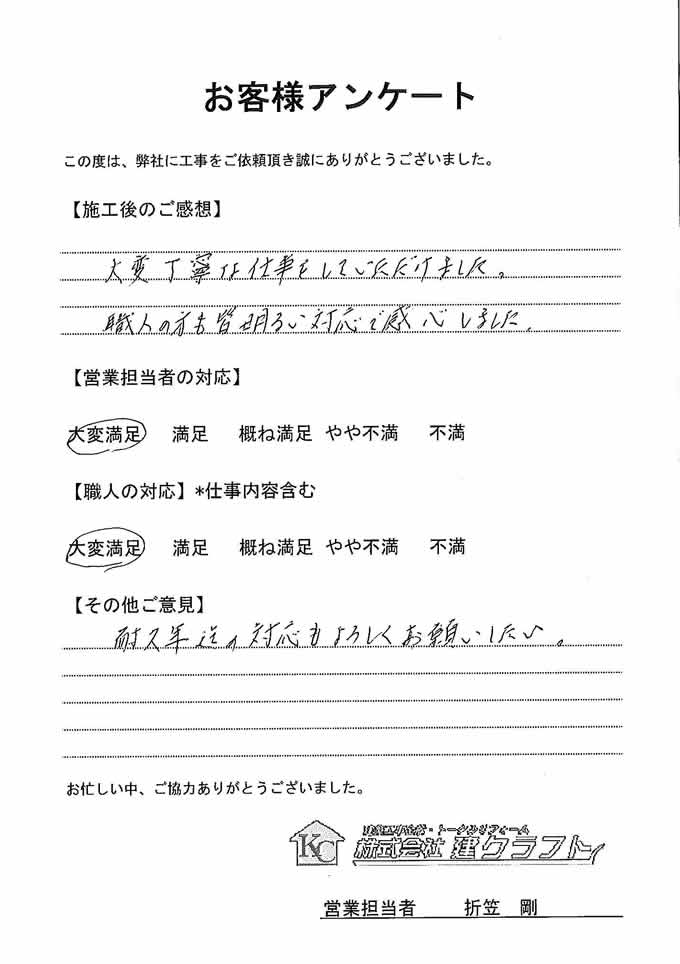 お客様アンケート
この度は、弊社に工事をご依頼頂き誠にありがとうございました。
【施工後のご感想】
大変丁寧な仕事をしていただけました。
職人の方も皆明るい対応で感心しました。
【営業担当者の対応】
大変満足 満足 概ね満足 やや不満 不満
【職人の対応】*仕事内容含む
大変満足 満足 概ね満足 やや不満 不満
【その他ご意見】
耐久年迄の対応もよろしくお願いしたい。
お忙しい中、ご協力ありがとうございました。
KC
・トータルリフォーム
株式会社 建クラフト
営業担当者 折笠 剛